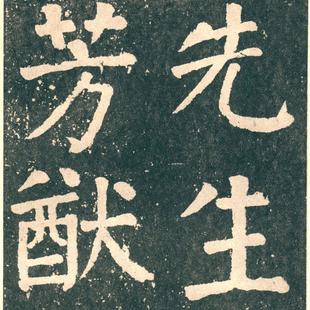 先生
芳猷